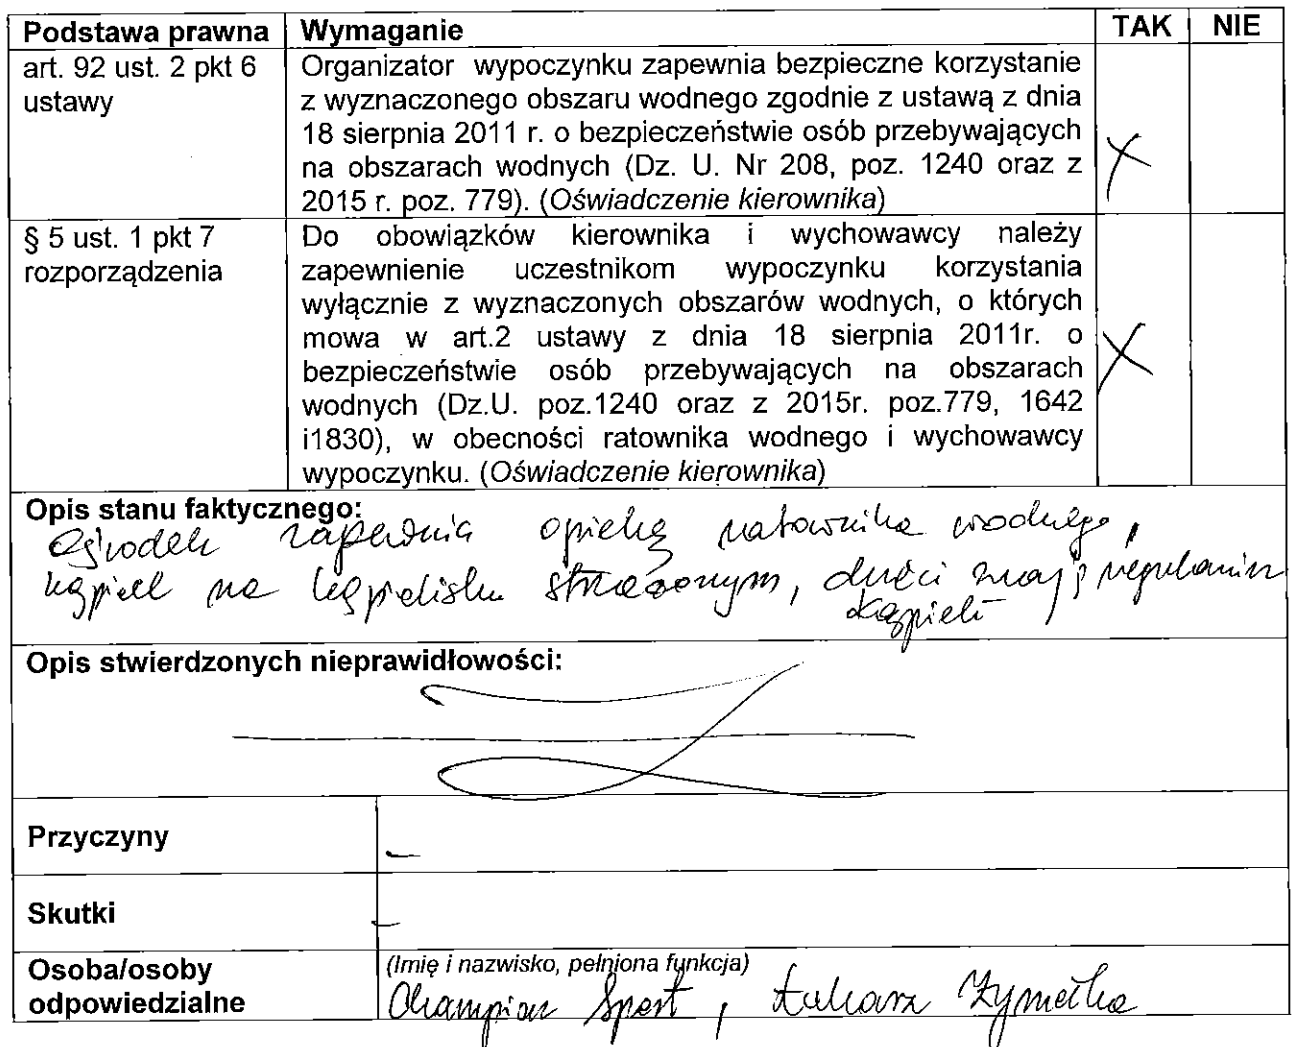 Podstawa prawna Wymaganie TAK NIE
art. 92 ust. 2 pkt 6
ustawy
Organizator wypoczynku zapewnia bezpieczne korzystanie
z wyznaczonego obszaru wodnego zgodnie z ustawą z dnia
18 sierpnia 2011 r. o bezpieczeństwie osób przebywających
na obszarach wodnych (Dz. U. Nr 208, poz. 1240 oraz z
2015 r. poz. 779). (Oświadczenie kierownika)
X
§ 5 ust. 1 pkt 7
rozporządzenia
Do obowiązków kierownika i wychowawcy należy
zapewnienie uczestnikom wypoczynku korzystania
wyłącznie z wyznaczonych obszarów wodnych, o których
mowa w art.2 ustawy z dnia 18 sierpnia 2011r. o
bezpieczeństwie osób przebywających na obszarach
wodnych (Dz.U. poz.1240 oraz z 2015r. poz.779, 1642
i1830), w obecności ratownika wodnego i wychowawcy
wypoczynku. (Oświadczenie kierownika)
X
Opis stanu faktycznego:
Ośrodek zapewnia opiekę ratownika wodnego,
kąpiel na kąpielisku strzeżonym, dzieci znają regulamin
kąpieli
Opis stwierdzonych nieprawidłowości:
Przyczyny -
Skutki -
Osoba/osoby
odpowiedzialne
(Imię i nazwisko, pełniona funkcja)
Champion Sport, Łukasz